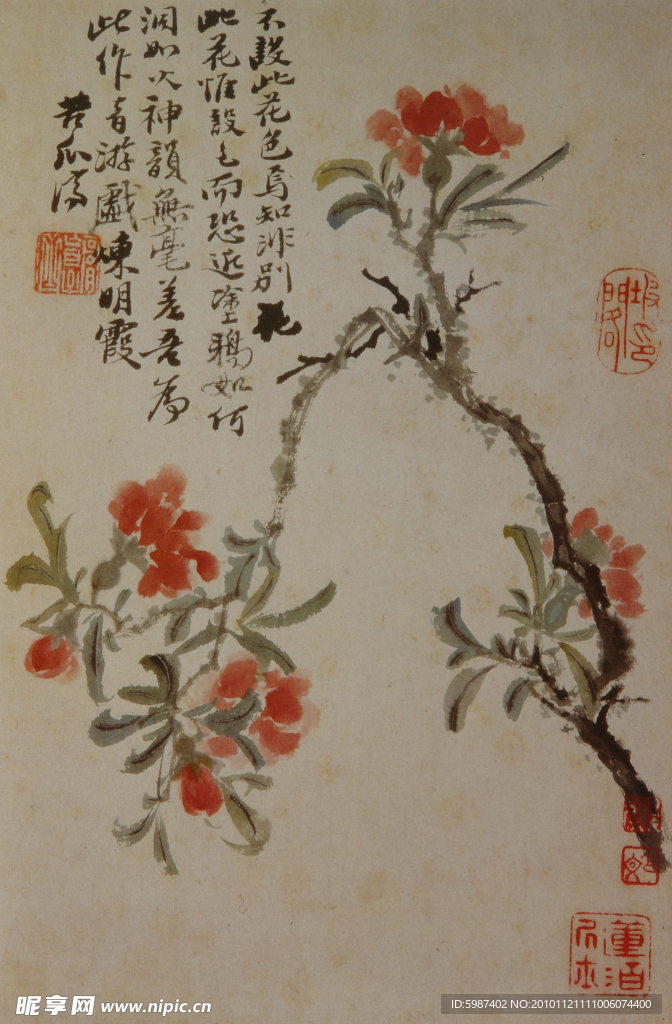 不設此花色焉知非別花
此花惟設色而恐近塗鴉如何
洞如火神韻無毫差吾為
此作音游戲煉明霞
苦瓜濟
昵享网 www.nipic.cn
ID:5987402 NO:20101121111006074400